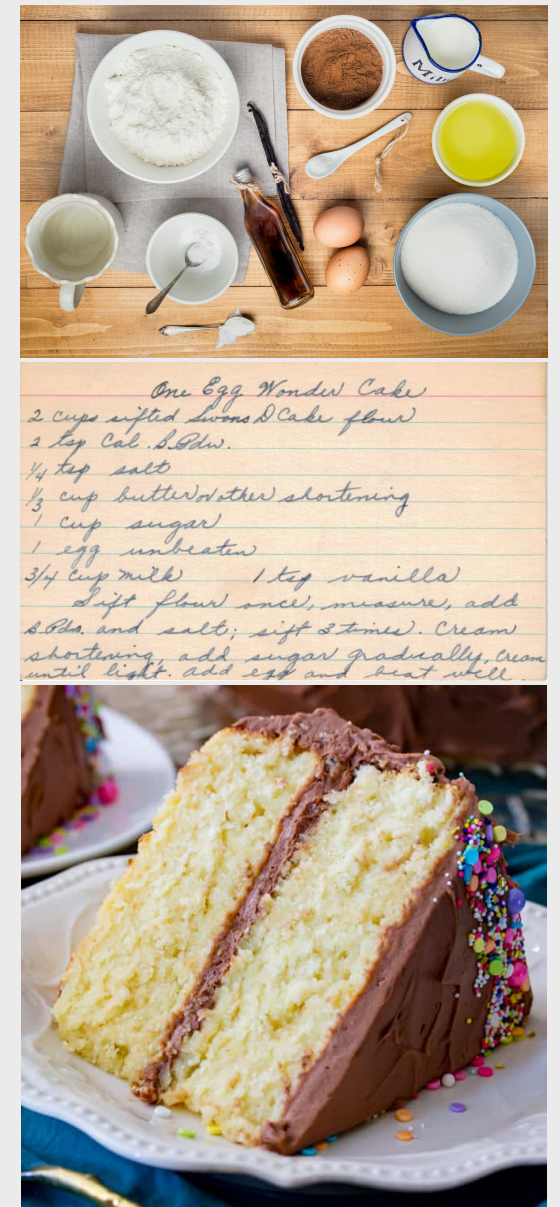 Mil
One Egg Wonder Cake
2 cups sifted Swans D Cake flour
2 tsp Cal. B. Pdw.
1/4 tsp salt
1/3 cup butter or other shortening
1 cup sugar
1 egg unbeaten
3/4 cup milk 1 tsp vanilla
Sift flour once, measure, add
B. Pdw. and salt; sift 3 times. Cream
shortening, add sugar gradually, cream
until light. Add egg and beat well.